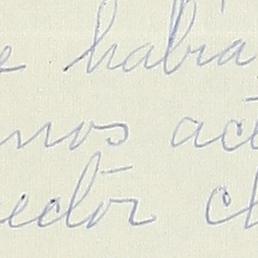 e había
nos act
ector cl